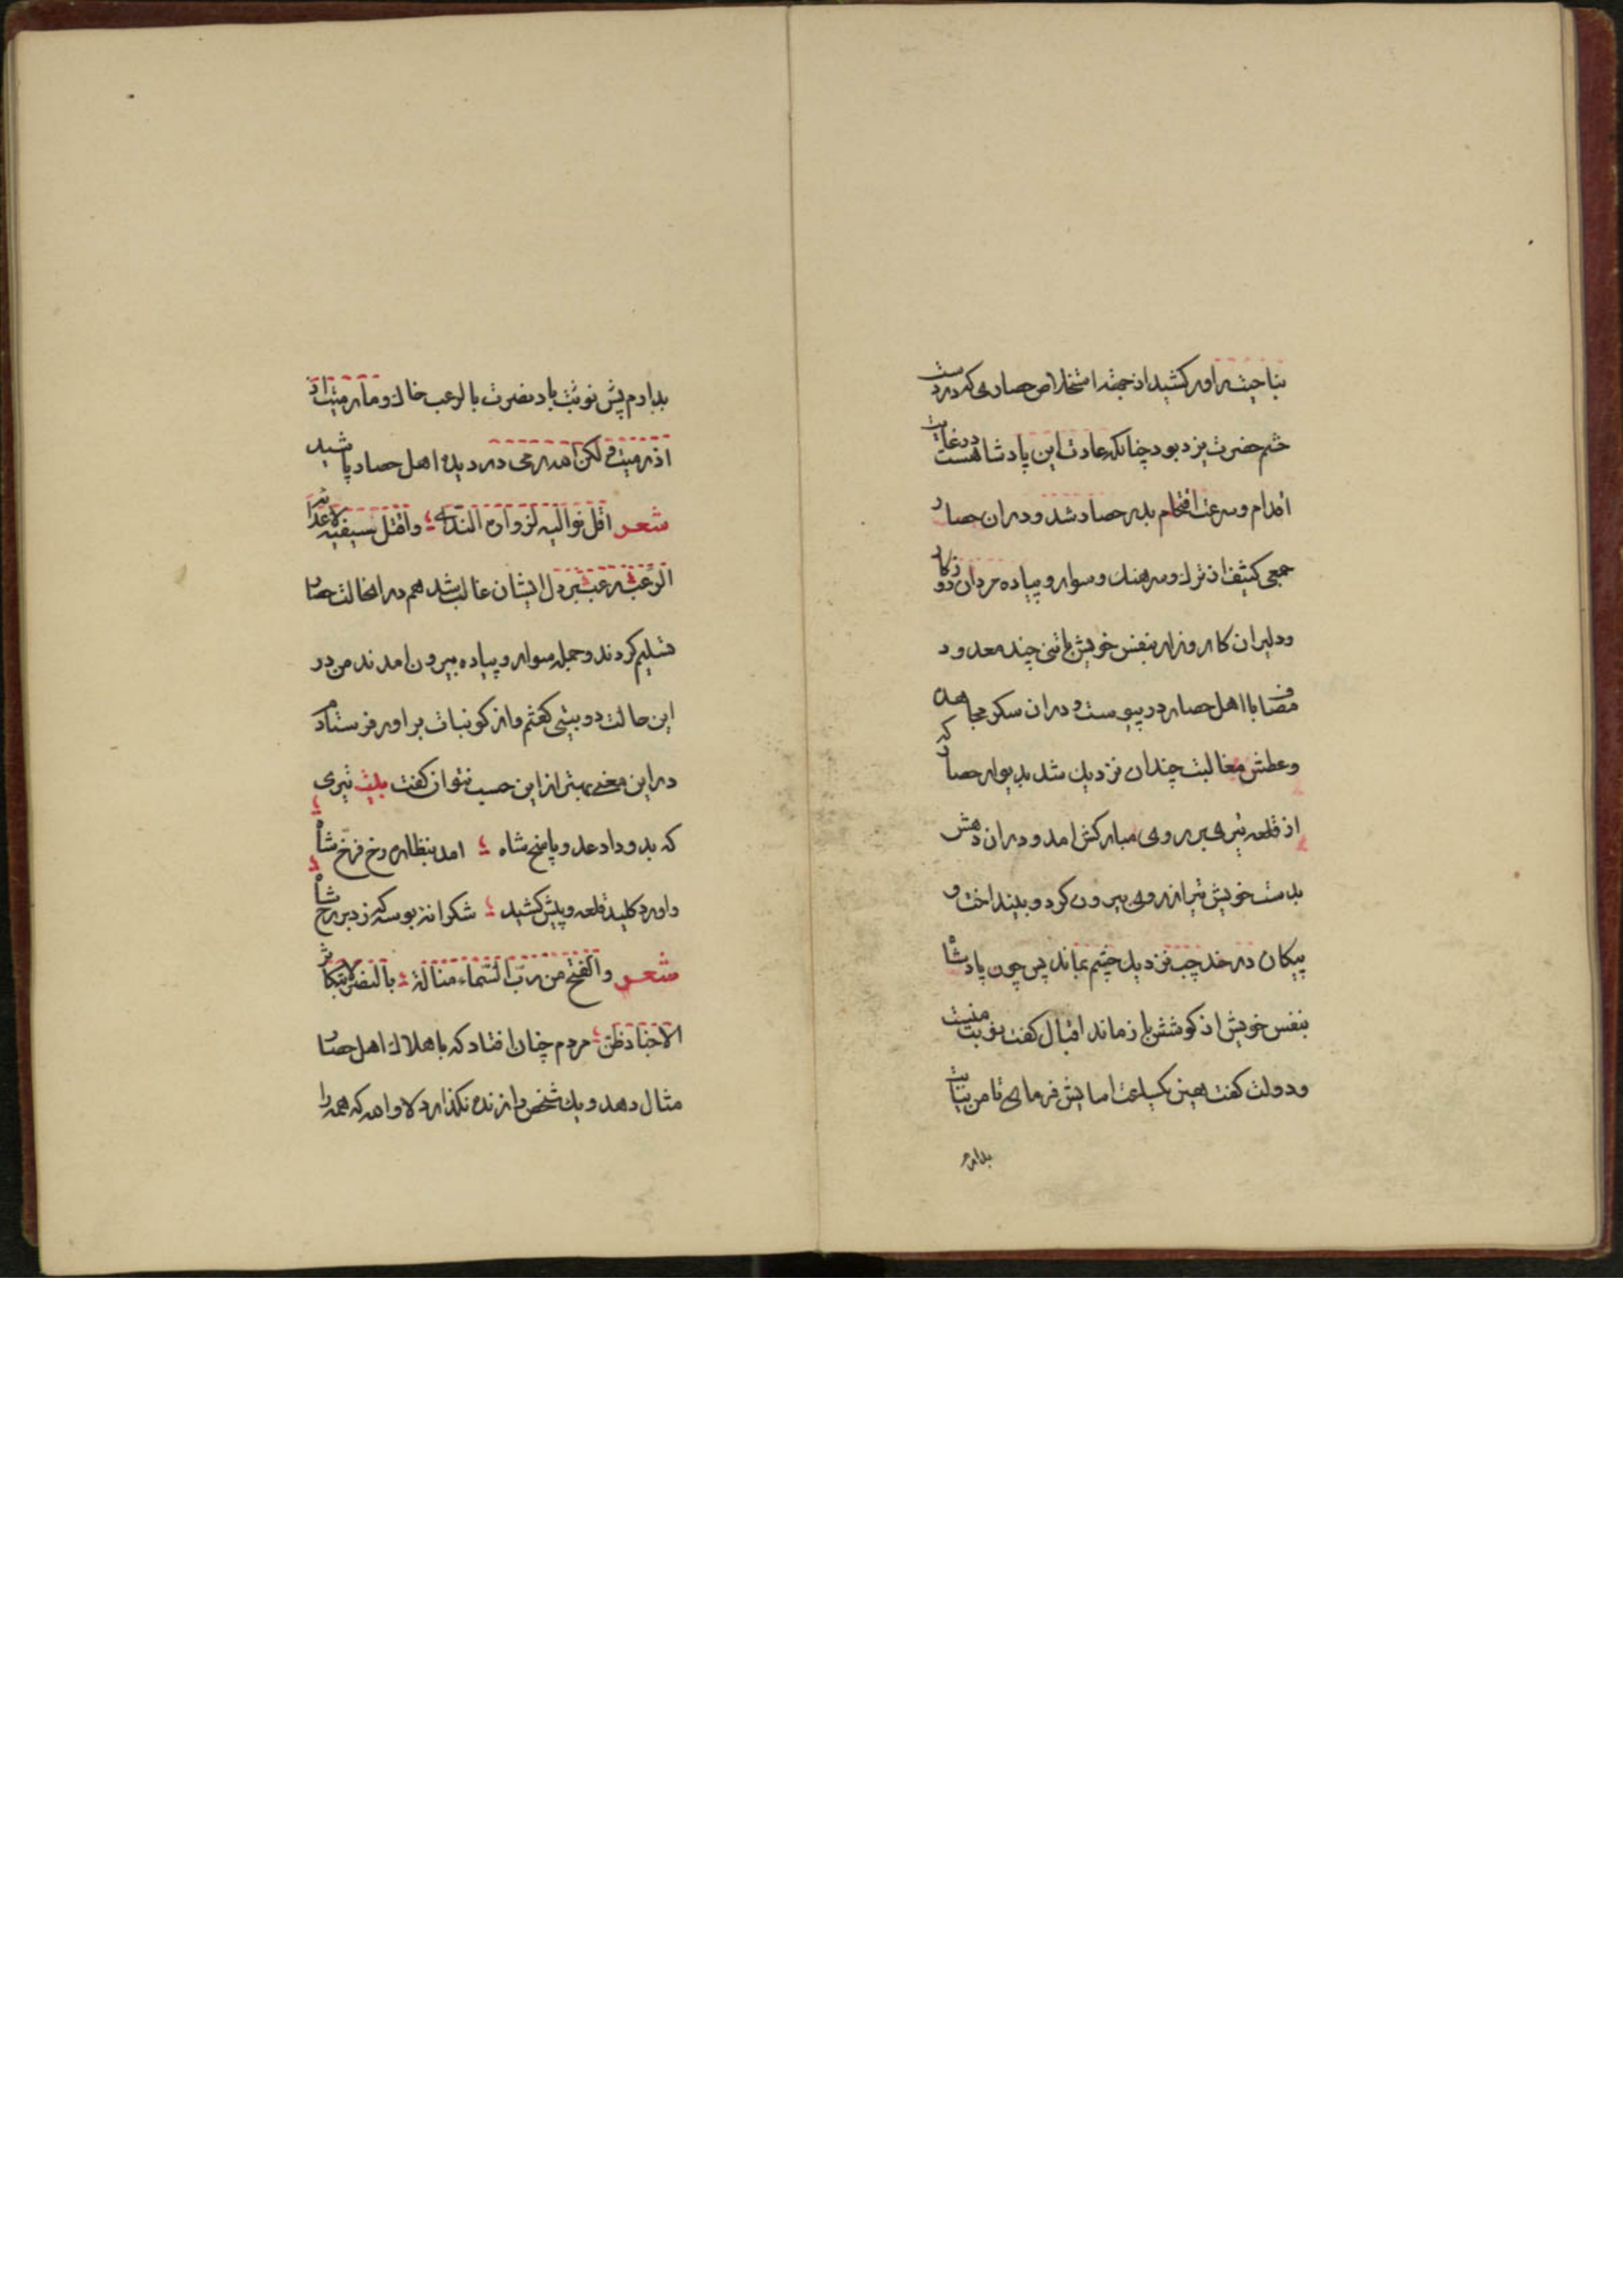 بناحیتی راور کشید از جهة استخلاص حصاری که در دست
خثم حضرت یزد بود چنانکه عادت این پادشاهست در غایت
اقدام و سرعت اقتحام بدر حصار شد و در ان حصار
جمعی کثیف از ترک و سرهنک و سوار و پیاده مردان
ودلیران کارزار بنفس خویش با تنی چند معدود
مصاف با اهل حصار در پیوست و در ان سکر مجاهده
وعطش مغالبت چندان نزدیک شد بدیوار حصار که
از قلعه تیری بر روی مبارکش امد و در ان دهش
بدست خویش تیر از روی بیرون کرد و بینداخت و
پیکان در خد چپ نزدیک چشم بماند پس چون پادشاه
بنفس خویش از کوشش باز ماند اقبال کفت نوبت منست
ودولت کفت همین یکساعت اسایش فرمای تا من بنیابت
بدارم
بدارم پیش نوبت باد نصرت بالرعب خاک و مارمیت اذ
اذرمیت ولکن الله رمی در دیده اهل حصار پاشید
شعر اقل نوالیه لزوار الندی ؛ واقتل سیفیه لاعدائه
الرعب رعب بر دل ایشان غالب شد هم در انحالت حصار
تسلیم کردند و جمله سوار و پیاده بیرون امدند من در
این حالت دوبیتی کفتم و از کوبنبات براور فرستادم
در این معنی بهتر از این حسب نتوان کفت بیت تیری
که بدو داد عدو پاسخ شاه ؛ امد بنظاره رخ فرخ شاه ؛
واورد کلید قلعه و پیش کشید ؛ شکرانه بوسه که زد بر رخ شاه
شعر والفتح من رب السماء مناله ؛ بالنصر لا بتکاثر
الاجناد ظن مردم چنان افتاد که باهلاک اهل حصار
مثال دهد و یک شخص را زنده نکذارد لا والله که همه را